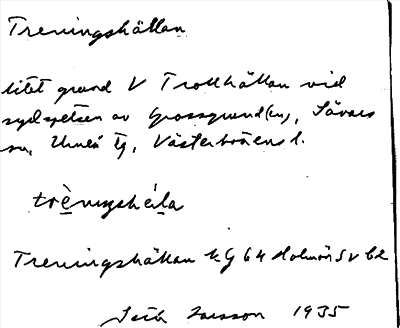 Treningshällan
litet grund V Trotthällan vid
sydspetsen av Grossgrund(en), Sävars
sn, Umeå tg, Västerbottens l.
trèningshela
Treningshällan kG 64 Holmön SV b2
Larsson 1935